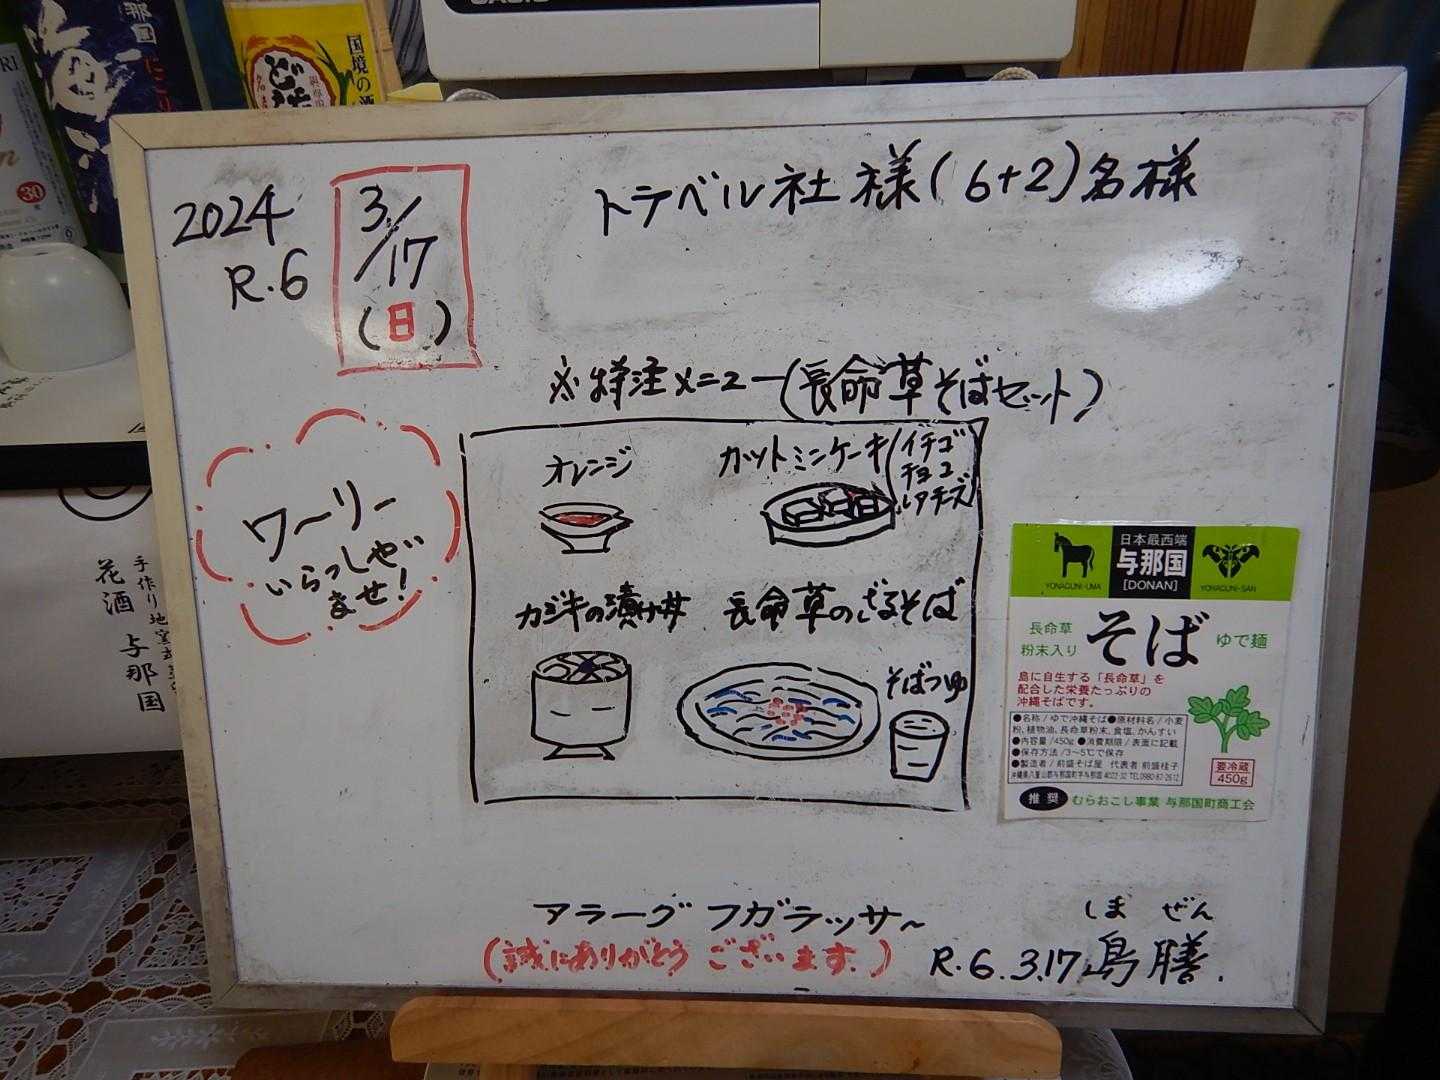 CASIO
国境の酒
どなん
海波
30
2024
R.6
3/17
(日)
トラベル社様(6+2)名様
※特注メニュー(長命草そばセット)
オレンジ
カットミンケーキ
イチゴ
チョコ
レアチーズ
カジキの漬け丼
長命草のざるそば
そばつゆ
ワーリー
いらっしゃい
ませ!
手作り地窯
花酒 与那国
日本最西端
与那国
[DONAN]
YONAGUNI-UMA
YONAGUNI-SAN
長命草
粉末入り
そば
ゆで麺
島に自生する「長命草」を
配合した栄養たっぷりの
沖縄そばです。
●名称/ゆで沖縄そば●原材料名/小麦
粉、植物油、長命草粉末、食塩、かんすい
●内容量/450g ●消費期限/表面に記載
●保存方法/3~5℃で保存
●製造者/前盛そば屋 代表者 前盛桂子
沖縄県八重山郡与那国町字与那国4022-32 TEL0980-87-2612
要冷蔵
450g
推奨
むらおこし事業 与那国町商工会
アラーグ フガラッサ~
(誠にありがとうございます。)
しま ぜん
R.6.3.17 島膳.